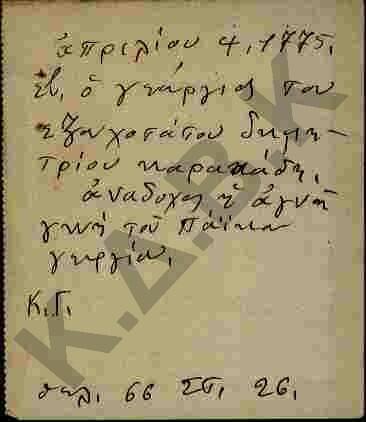 ἀπριλίου 4, 1775,
ἐβ, ὁ γεώργιος του
εξοχοτάτου δημη-
τρίου καρακάδη,
ἀνάδοχος ἡ ἁγνὴ
γυνὴ τοῦ Πάϊκου
γεωργίου,
Κ.Γ.
σελ, 66 Στ, 26,
Κ.Δ.Β.Κ